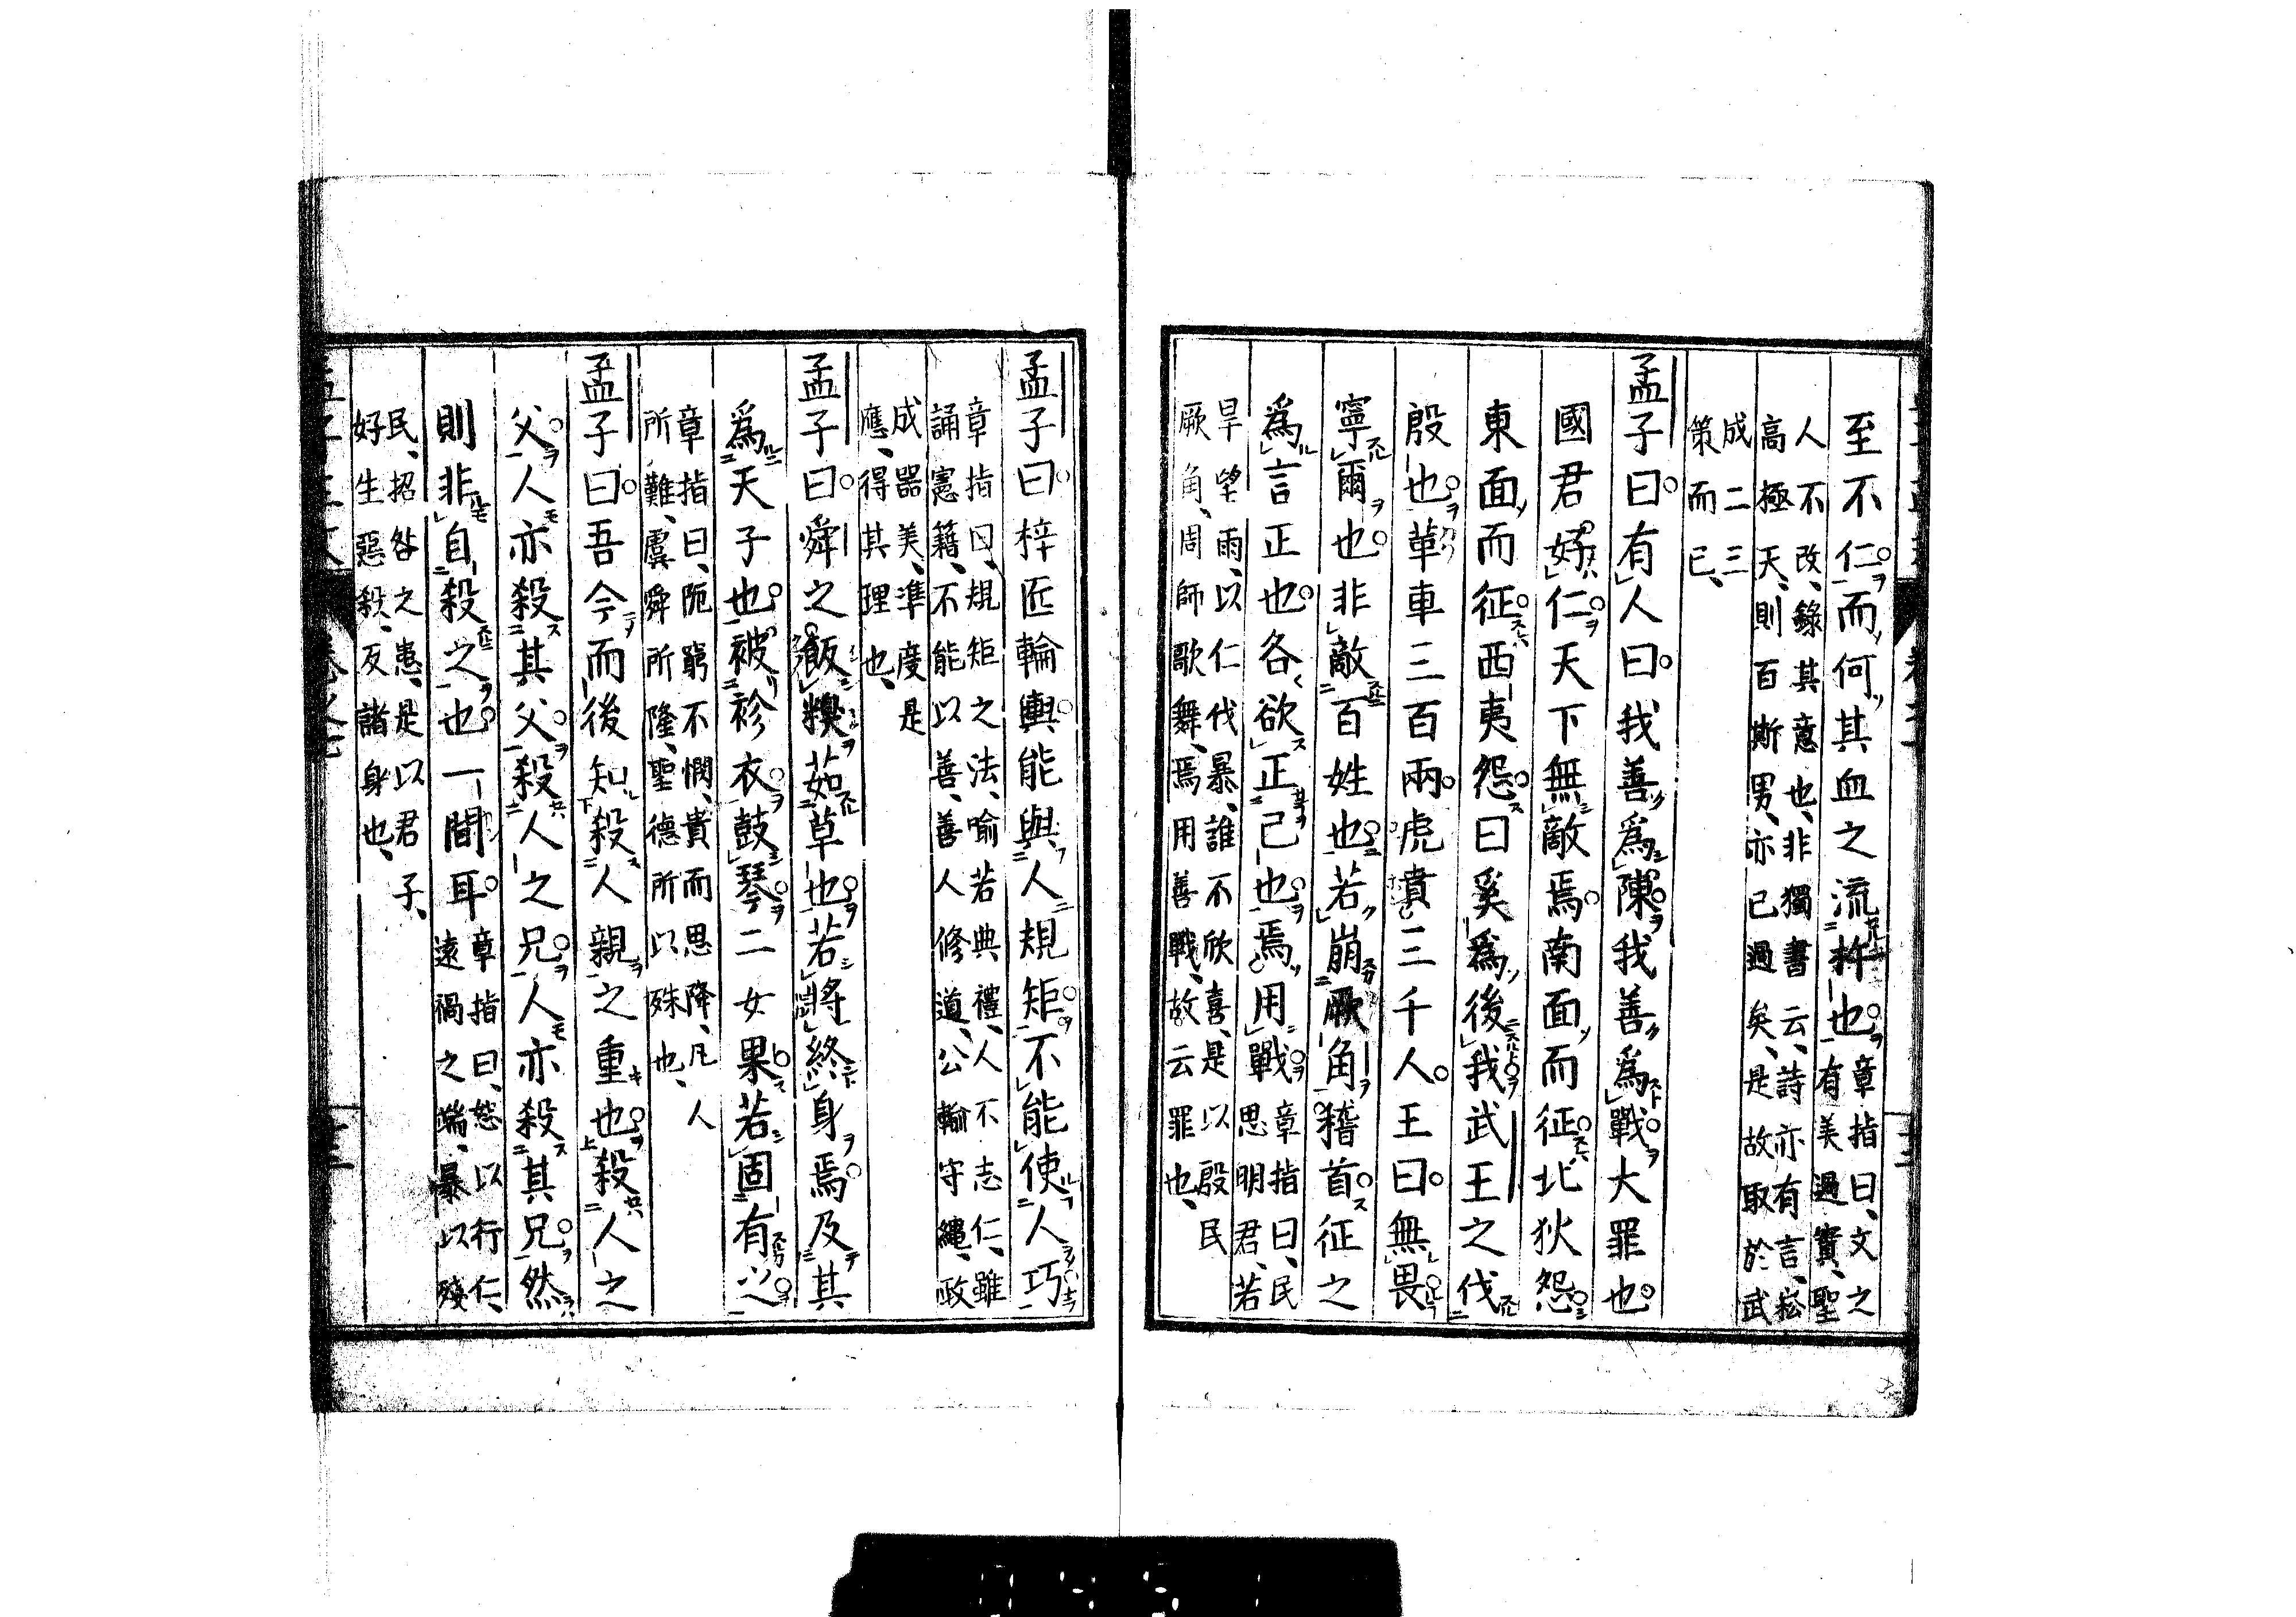 至不仁而何其血之流杵也章指曰文之
有美過實聖
人不改錄其意也非獨書云詩亦有言崧
高極天則百斯男亦已過矣是故取於武
成二三
策而已
孟子曰有人曰我善爲陳我善爲戰大罪也
國君好仁天下無敵焉南面而征北狄怨
東面而征西夷怨曰奚爲後我武王之伐
殷也革車三百兩虎賁三千人王曰無畏
寧爾也非敵百姓也若崩厥角稽首征之
爲言正也各欲正己也焉用戰章指曰民
思明君若
旱望雨以仁伐暴誰不欣喜是以殷民
厥角周師歌舞焉用善戰故云罪也
孟子曰梓匠輪輿能與人規矩不能使人巧
章指曰規矩之法喻若典禮人不志仁雖
誦憲籍不能以善善人修道公輸守繩政
成器美準度是
應得其理也
孟子曰舜之飯糗茹草也若將終身焉及其
爲天子也被袗衣鼓琴二女果若固有之
章指曰阨窮不憫貴而思降凡人
所難虞舜所隆聖德所以殊也
孟子曰吾今而後知殺人親之重也殺人之
父人亦殺其父殺人之兄人亦殺其兄然
則非自殺之也一間耳章指曰恕以行仁
遠禍之端暴以殘
民招咎之患是以君子
好生惡殺反諸身也